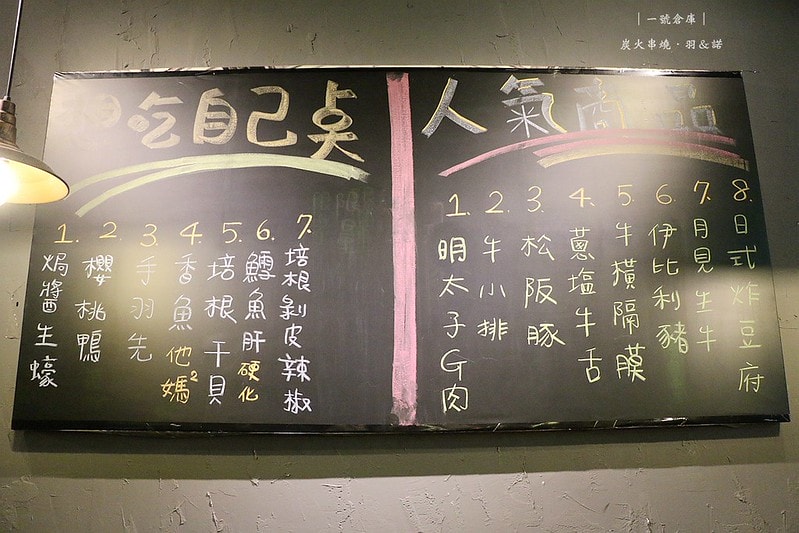 ｜一號倉庫｜
炭火串燒‧羽&諾
吃自己奌
1. 焗醬生蠔
2. 櫻桃鴨
3. 手羽先
4. 香魚他媽²
5. 培根干貝
6. 鱈魚肝硬化
7. 培根剝皮辣椒
人氣商品
1. 明太子G肉
2. 牛小排
3. 松阪豚
4. 蔥塩牛舌
5. 牛橫隔膜
6. 伊比利豬
7. 月見生牛
8. 日式炸豆府